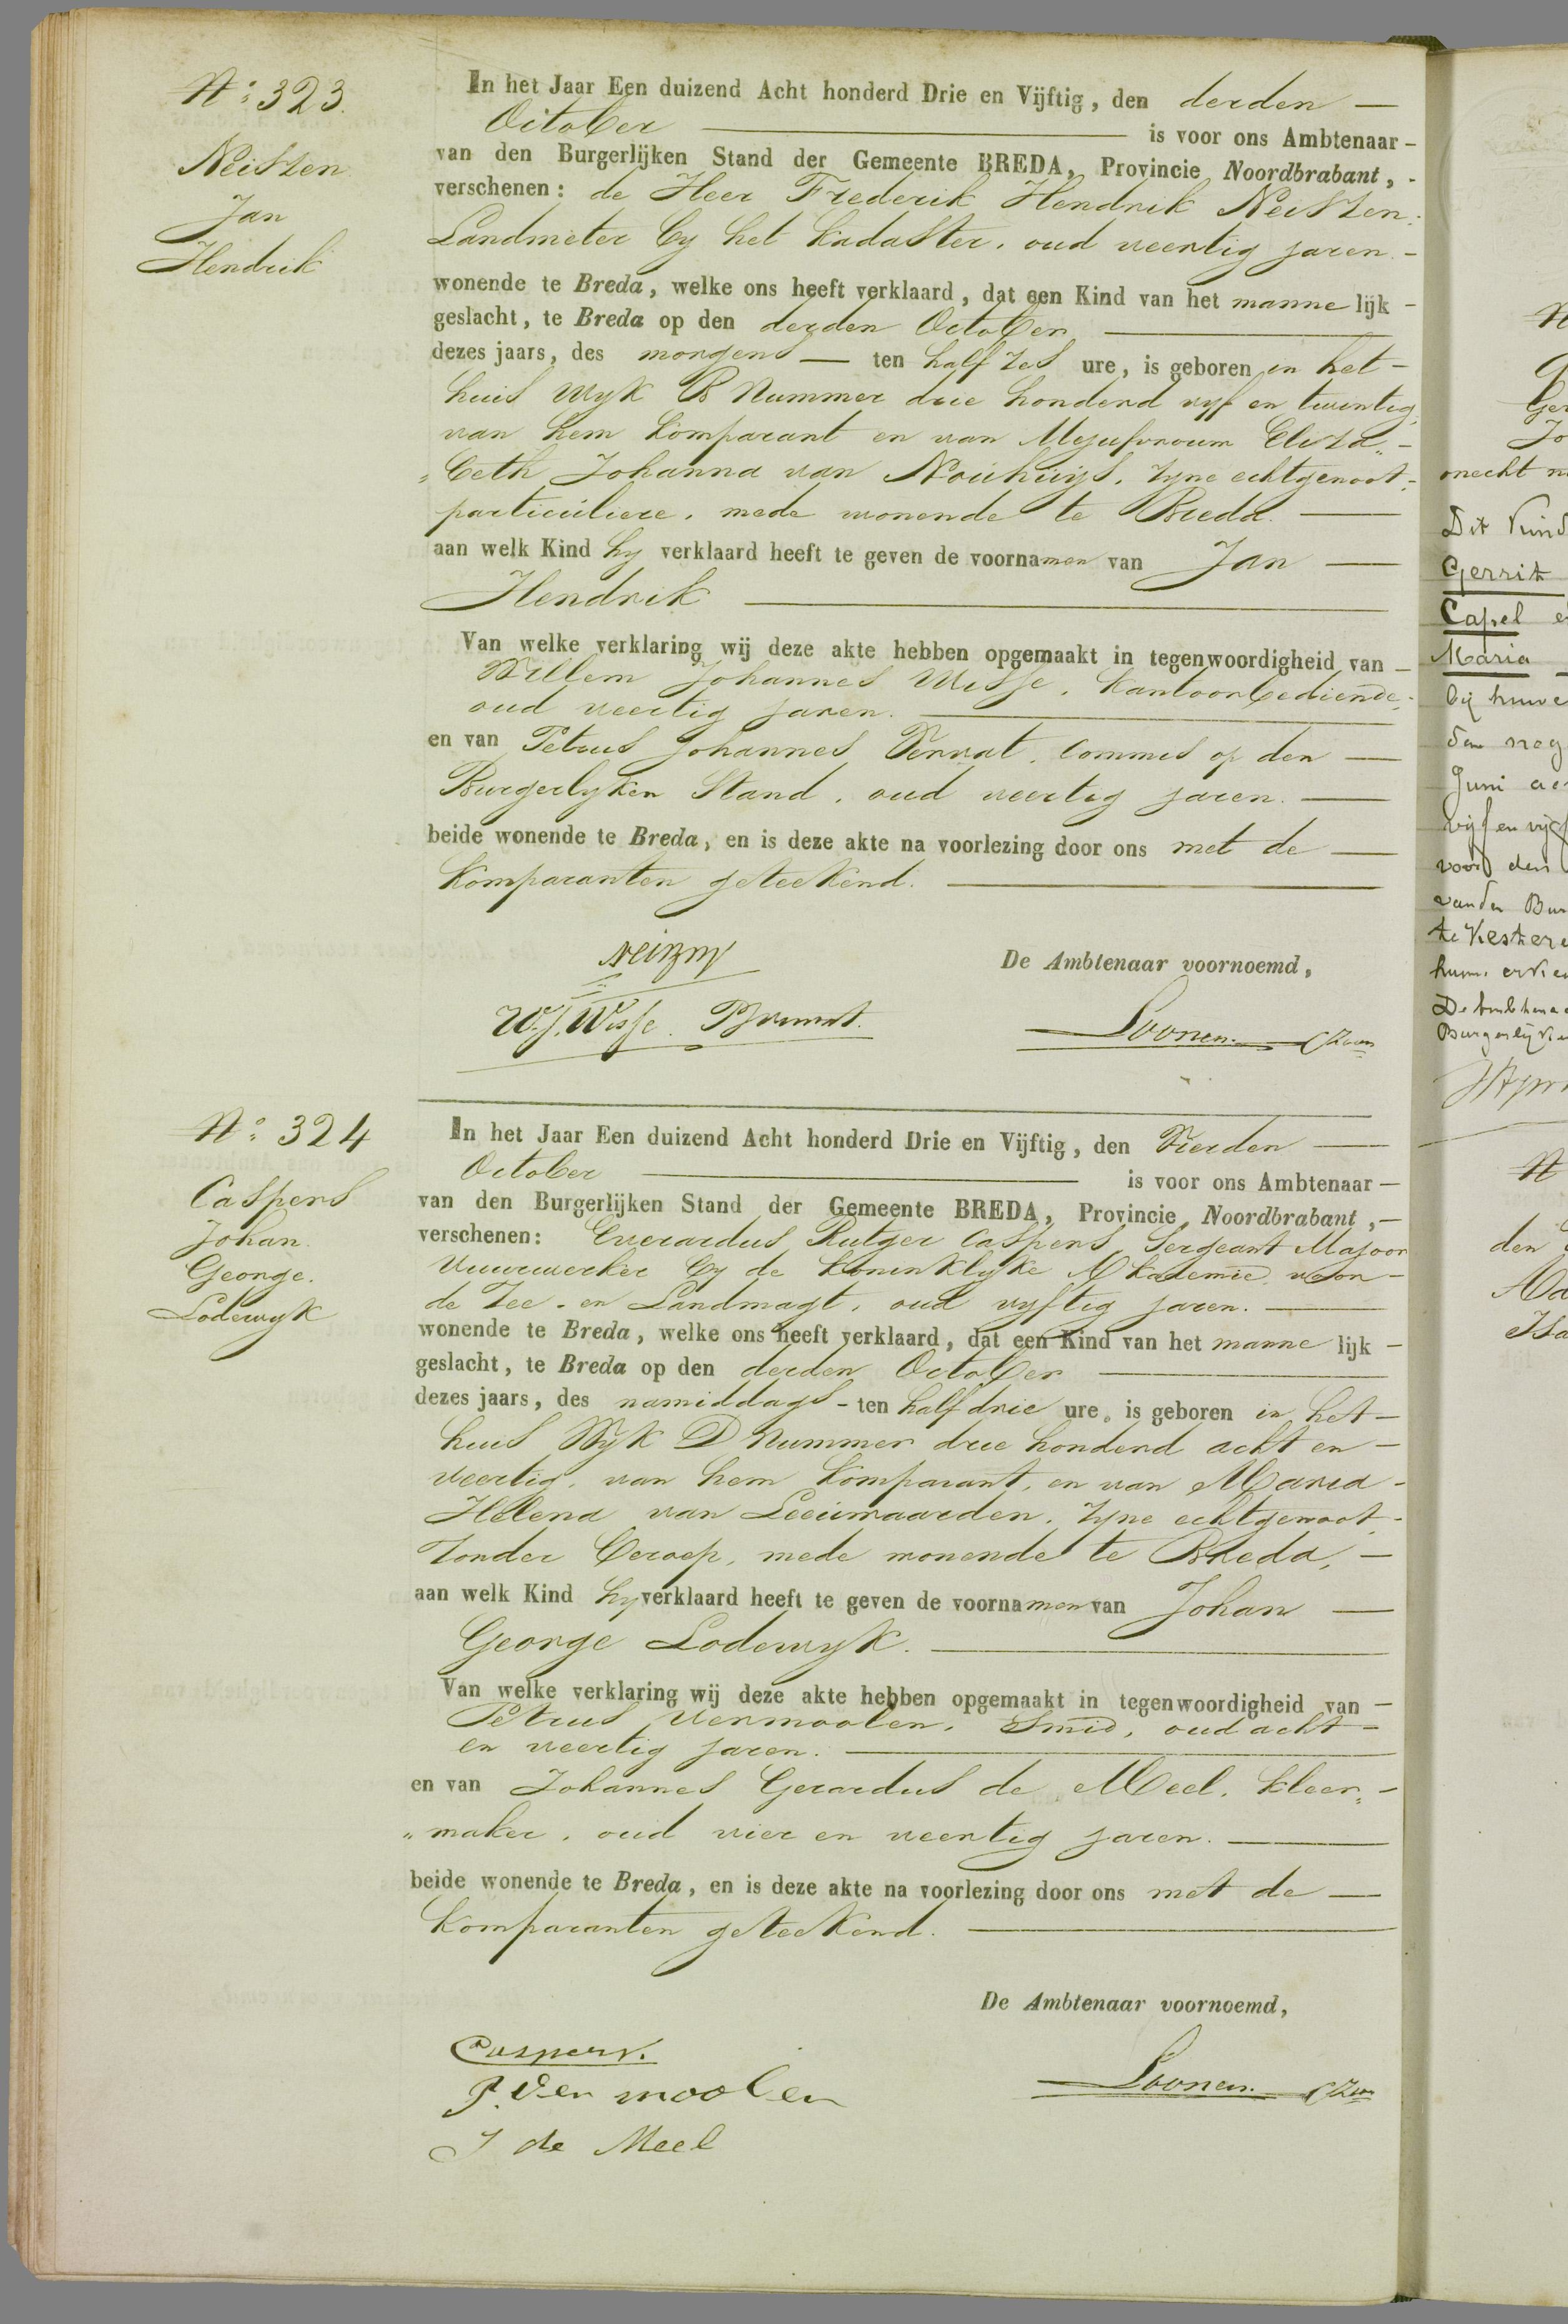 No 323.
Neiszen
Jan
Hendrik
In het Jaar Een duizend Acht honderd Drie en Vijftig, den derden —
October — is voor ons Ambtenaar —
van den Burgerlijken Stand der Gemeente BREDA, Provincie Noordbrabant, -
verschenen: de Heer Frederik Hendrik Neiszen.
Landmeter by het Kadaster, oud veertig jaren. -
wonende te Breda, welke ons heeft verklaard, dat een Kind van het manne lijk -
geslacht, te Breda op den derden October —
dezes jaars, des morgens — ten half zes ure, is geboren in het -
huis Wyk B Nummer drie honderd vyf en twintig,
van hem Komparant en van Mejufvrouw Eliza„ -
„beth Johanna van Nouhuijs, zyne echtgenoot.
particuliere, mede wonende te Breda. —
aan welk Kind hy verklaard heeft te geven de voornamen van Jan —
Hendrik —
Van welke verklaring wij deze akte hebben opgemaakt in tegenwoordigheid van —
Willem Johannes Wisse, Kantoorbediende,
oud veertig jaren. —
en van Petrus Johannes Vervat, Commis op den —
Burgerlyken Stand, oud veertig jaren. —
beide wonende te Breda, en is deze akte na voorlezing door ons met de —
Komparanten geteekend. —
De Ambtenaar voornoemd,
Neiszen
W.J. Wisse. PJVervat.
Loonen. CZoon
No 324
Caspers
Johan
George.
Lodewyk
In het Jaar Een duizend Acht honderd Drie en Vijftig, den Vierden —
October — is voor ons Ambtenaar —
van den Burgerlijken Stand der Gemeente BREDA, Provincie Noordbrabant, —
verschenen: Everardus Rutger Caspers, Sergeant Majoor
Vuurwerker by de Koninklyke Akademie voor -
de Zee - en Landmagt, oud vyftig jaren. —
wonende te Breda, welke ons heeft verklaard, dat een Kind van het manne lijk -
geslacht, te Breda op den derden October —
dezes jaars, des namiddags - ten half drie ure, is geboren in het —
huis Wyk D Nummer drie honderd acht en —
veertig, van hem Komparant, en van Maria -
Helena van Leeuwaarden, zyne echtgenoot -
zonder beroep, mede wonende te Breda, —
aan welk Kind hy verklaard heeft te geven de voornamen van Johan —
George Lodewyk. —
Van welke verklaring wij deze akte hebben opgemaakt in tegenwoordigheid van —
Petrus Vermoolen, Smid, oud acht -
en veertig jaren. —
en van Johannes Gerardus de Meel, kleer„ -
„maker, oud vier en veertig jaren. —
beide wonende te Breda, en is deze akte na voorlezing door ons met de —
Komparanten geteekend. —
De Ambtenaar voornoemd,
Caspers.
P. Ver moolen
J de Meel
Loonen. CZoon
N
Ger
Jo
onecht m
Dit kind
Gerrit
Capel e
Maria
bij huwe
den neg
Juni ac
vijf en vijf
voor den
van den Bur
te Kestere
hunn. erken
Burgerlijke
N
den
Ma
Isa